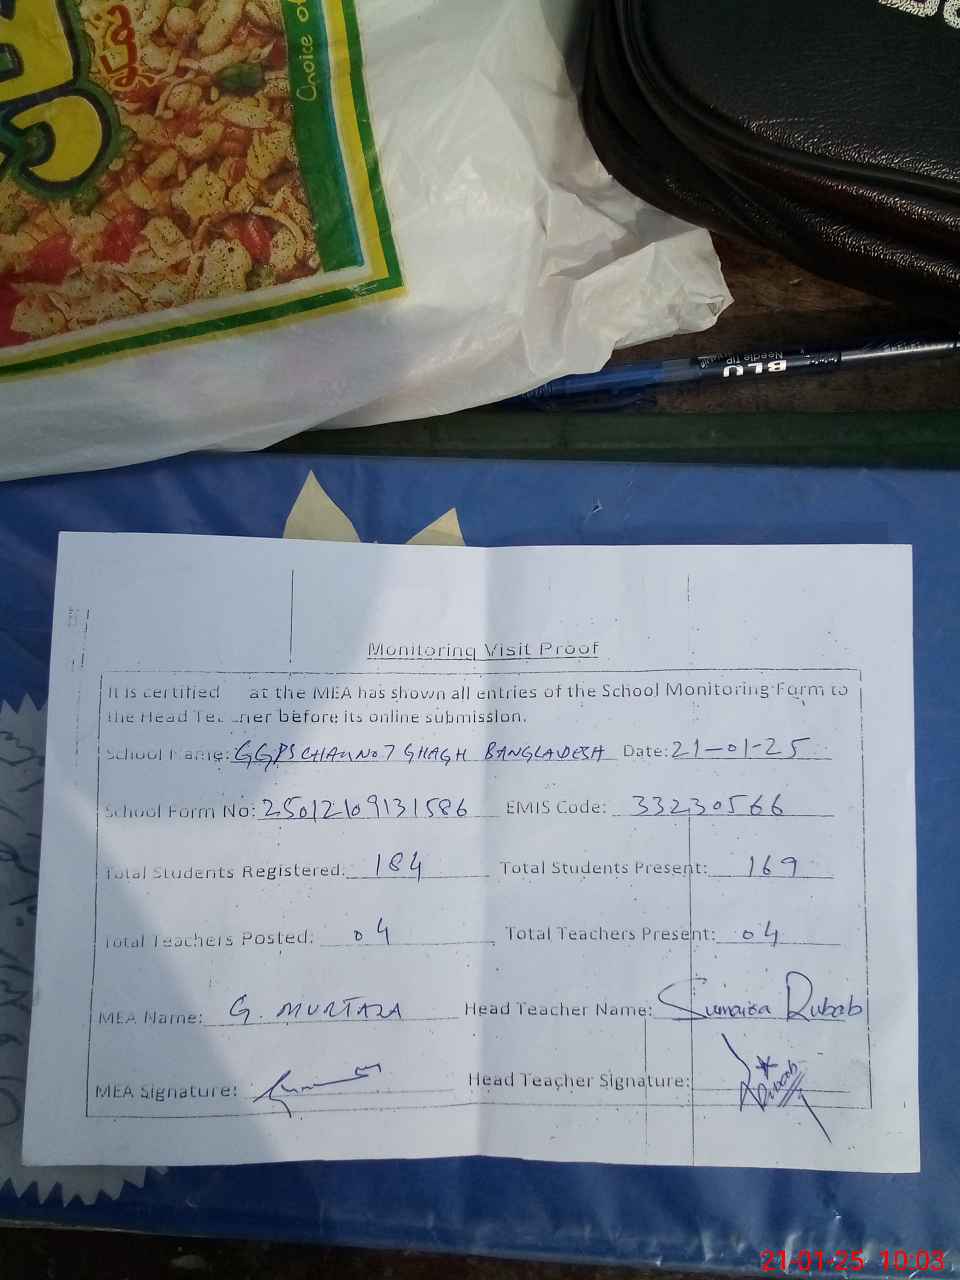 Choice of
BLU
Needle TIP
Monitoring Visit Proof
It is certified at the MEA has shown all entries of the School Monitoring Form to
the Head Tec ner before its online submission.
School Name: GGPS CHAH NO 7 GHAGH BANGLADESH Date: 21-01-25
School Form No: 25012109131586 EMIS Code: 33230566
Total Students Registered: 184 Total Students Present: 169
Total Teachers Posted: 04 Total Teachers Present: 04
MEA Name: G. MURTAZA Head Teacher Name: Sumaira Rubab
MEA Signature: Head Teacher Signature: Rubab
21-01-25 10:03